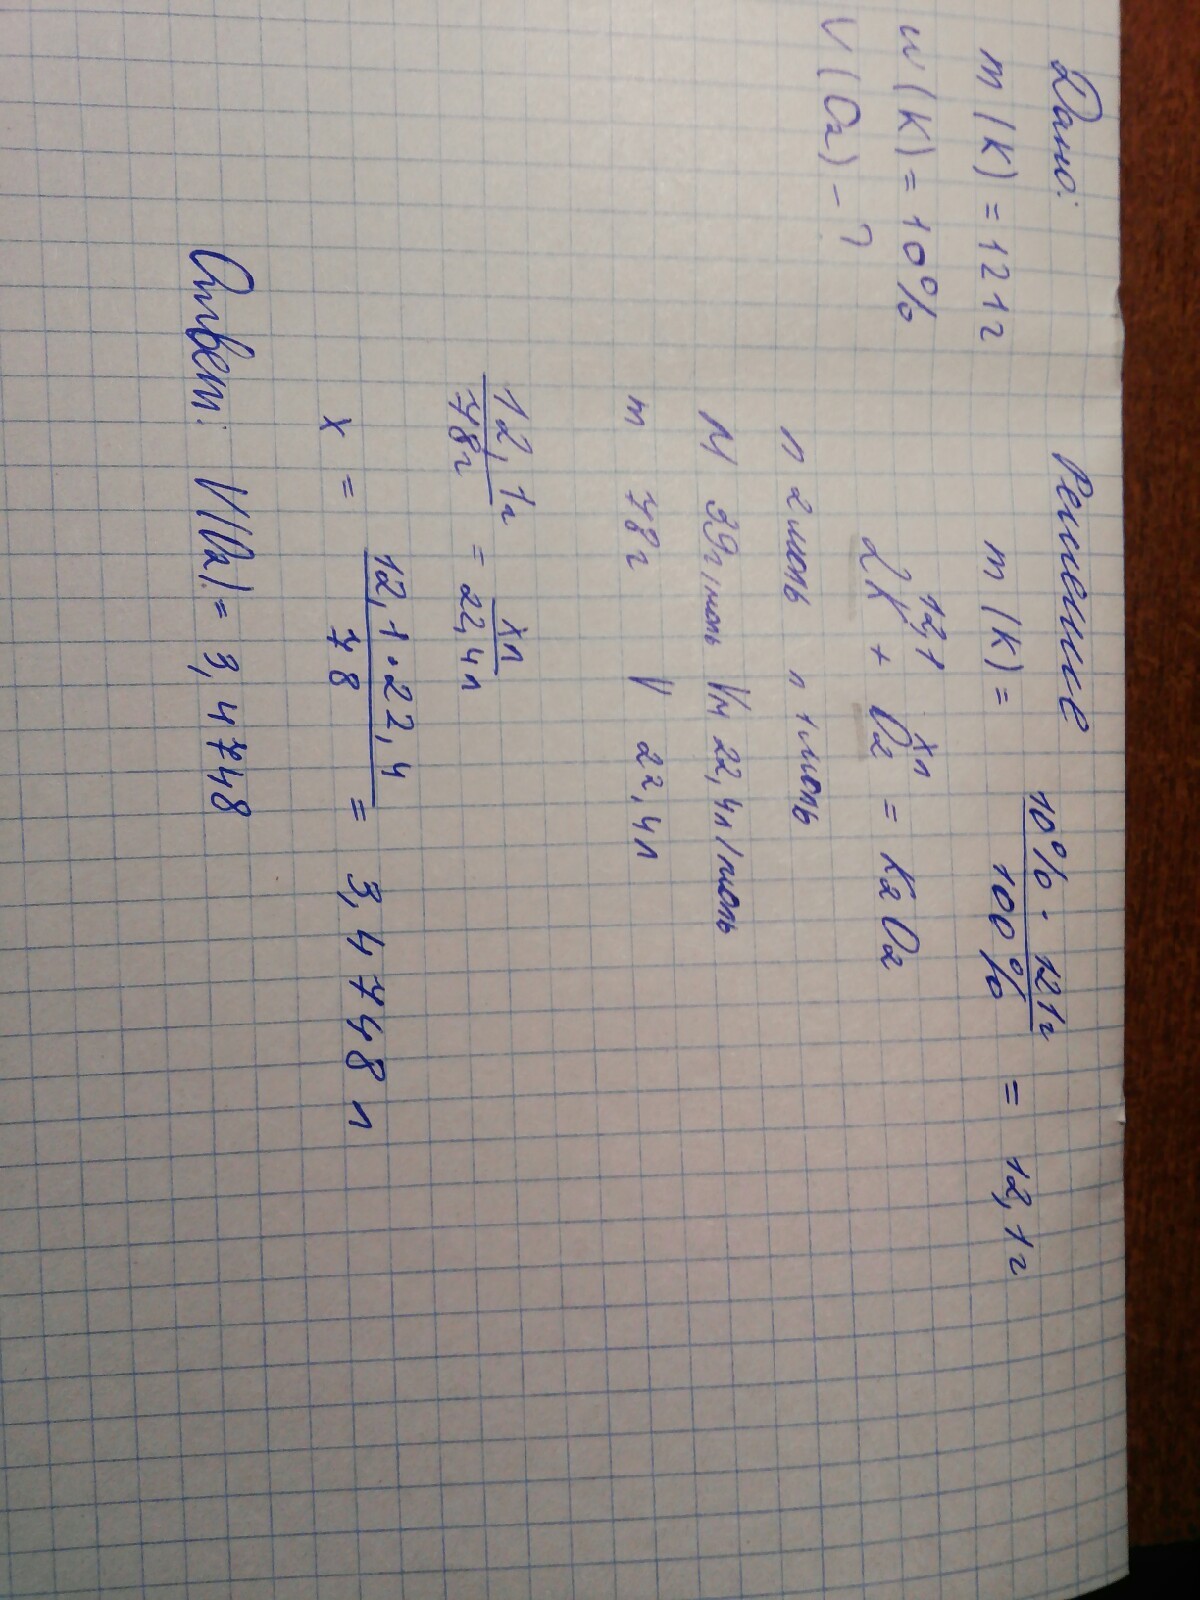 Дано:
m (K) = 121г
w (K) = 10%
V (O2) - ?
Решение
m (K) = 10% · 121г / 100% = 12,1г
12,1 xл
2K + O2 = K2O2
n 2моль n 1моль
M 39г/моль Vм 22,4л/моль
m 78г V 22,4л
12,1г / 78г = xл / 22,4л
x = 12,1·22,4 / 78 = 3,4748 л
Ответ: V(O2) = 3,4748